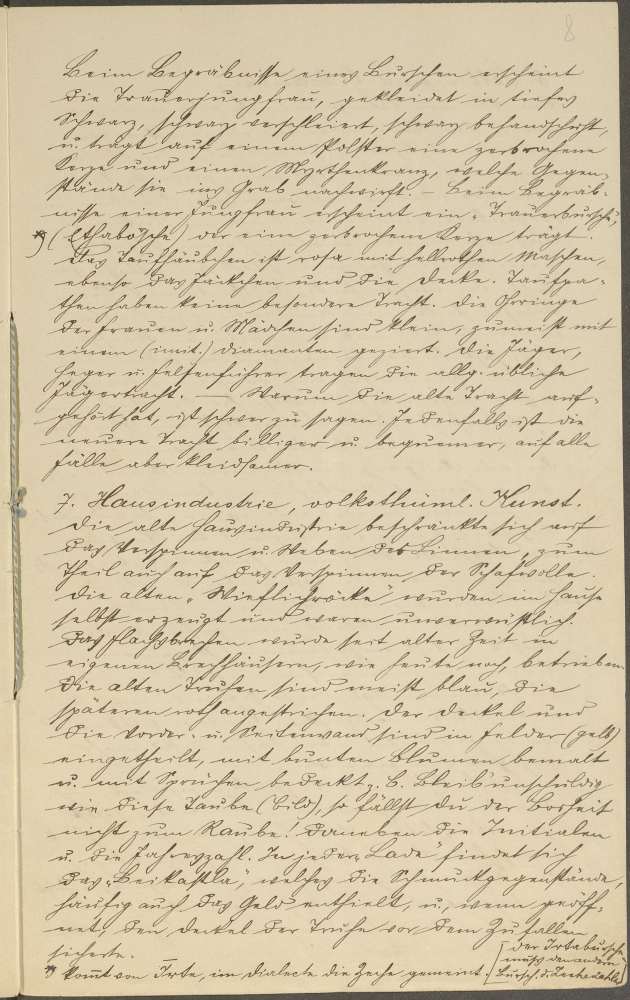 8
Beim Begräbnisse eines Burschen erscheint
die Trauerjungfrau, gekleidet in tiefes
Schwarz, schwarz verschleiert, schwarz behandschuht,
u. trägt auf einem Polster eine zerbrochene
Kerze und einen Myrthenkranz, welche Gegen-
stände sie ins Grab nachwirft. – Beim Begräb-
nisse einer Jungfrau erscheint ein „Trauerbursche",
*) ( der eine zerbrochene Kerze trägt.
Das Taufhäubchen ist rosa mit hellrothen Maschen,
ebenso das Jäckchen und die Decke. Taufpa-
then haben keine besondere Tracht. Die Ohrringe
der Frauen u. Mädchen sind klein, zumeist mit
einem (imit.) Diamanten geziert. Die Jäger,
Heger u. Felsenführer tragen die allg. übliche
Jägertracht. — Warum die alte Tracht auf-
gehört hat, ist schwer zu sagen. Jedenfalls ist die
neuere Tracht billiger u. bequemer, auf alle
Fälle aber kleidsamer.
7. Hausindustrie, volksthüml. Kunst.
Die alte Hausindustrie beschränkte sich auf
das Verspinnen u. Weben des Linnen, zum
Theil auch auf das Verspinnen der Schafwolle.
Die alten „ " wurden im Hause
selbst erzeugt und waren unverwüstlich.
Das Flachsbrechen wurde seit alter Zeit in
eigenen Brechhäusern, wie heute noch, betrieben.
Die alten Truhen sind meist blau, die
späteren roth angestrichen. Der Deckel und
die Vorder- u. Seitenwand sind in Felder (gelb)
eingetheilt, mit bunten Blumen bemalt
u. mit Sprüchen bedeckt z. B. Bleib' unschuldig
wie diese Taube (Bild), so fällst du der Bosheit
nicht zum Raube! Daneben die Initialen
u. die Jahreszahl. In jeder „Lade" findet sich
das „Beikastla", welches die Schmuckgegenstände,
häufig auch das Geld enthielt, u., wenn geöff-
net, den Deckel der Truhe vor dem Zufallen
sicherte.
*) kommt von Irte, im Dialecte die Zeche genannt. [der Irtabursche
muß den andern
Bursch. d. Zeche zahlen]